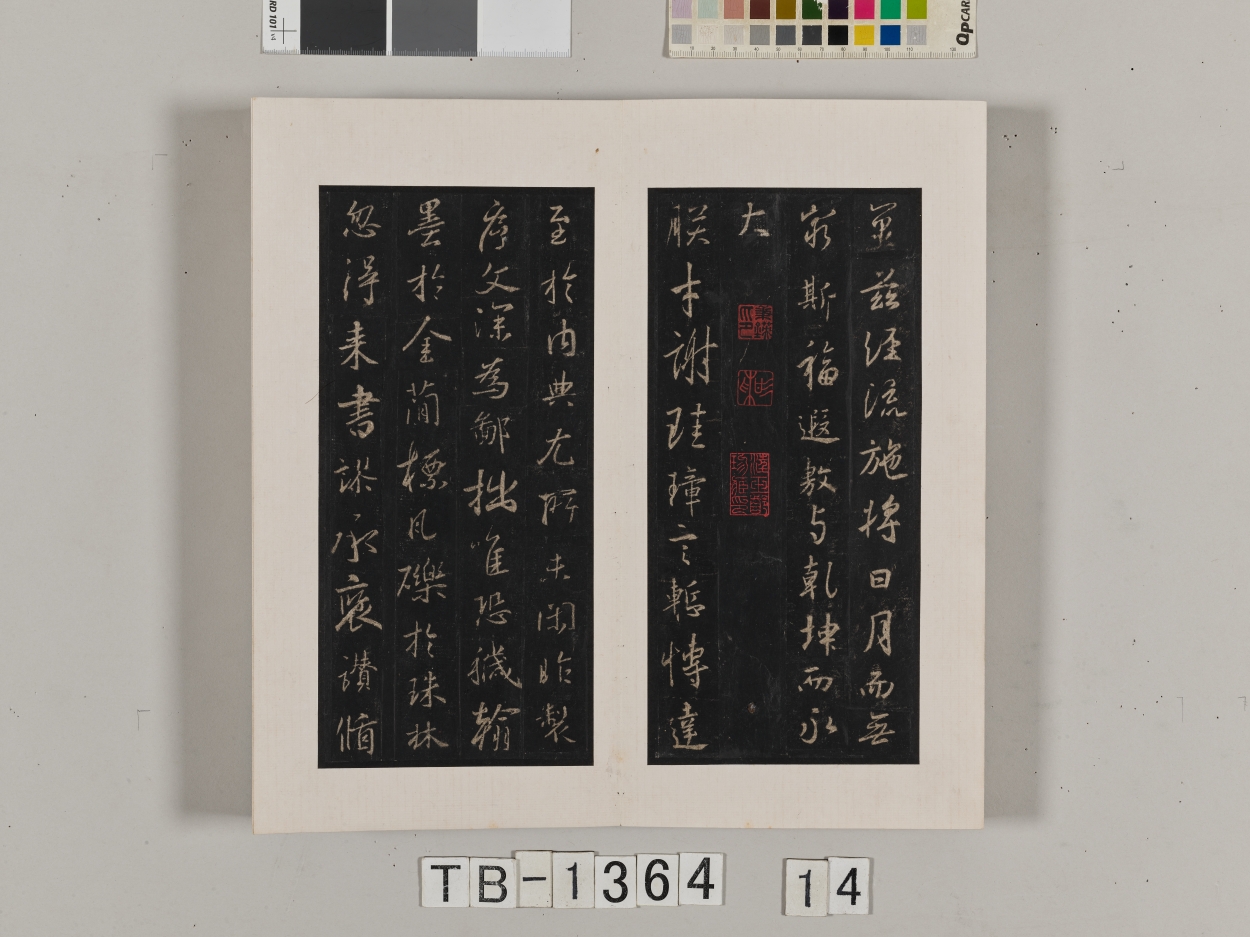 冀茲經流施將日月而無
窮斯福遐敷与乹坤而永
大
朕才謝珪璋言慙博達
至於內典尤所未閑昨製
序文深為鄙拙唯恐穢翰
墨於金簡標瓦礫於珠林
忽得来書謬承褒讚循
TB-1364 14